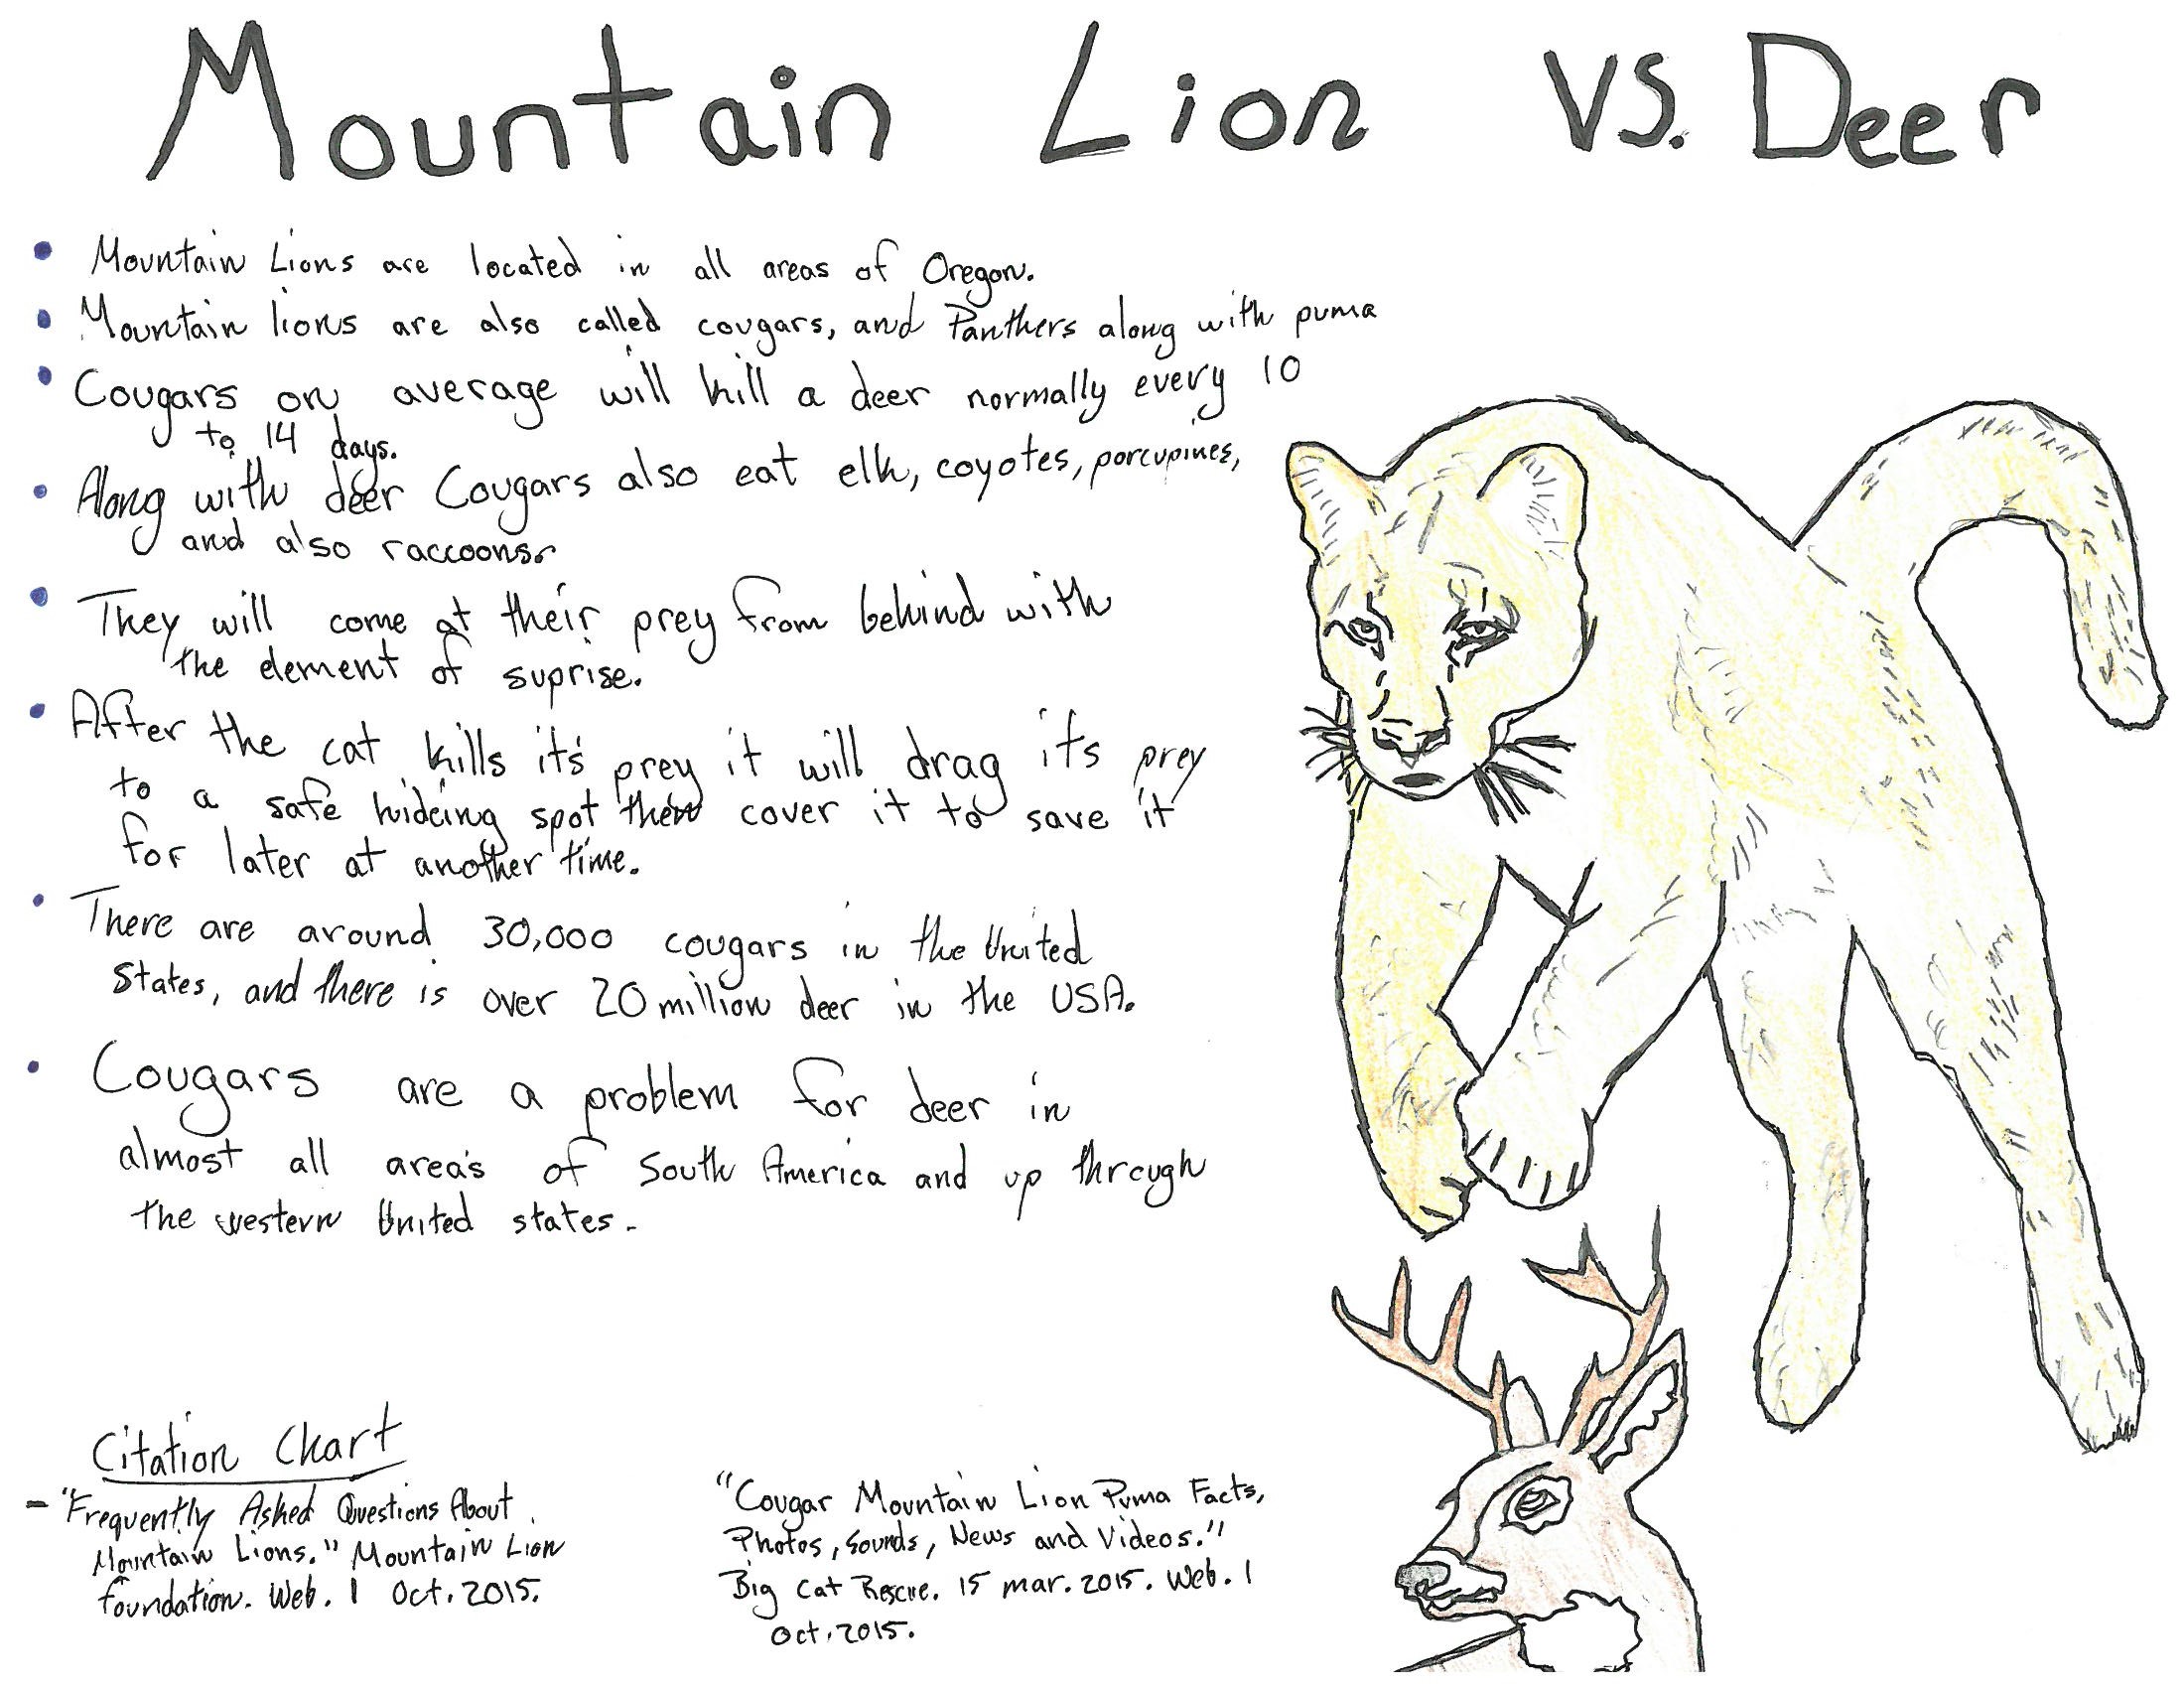 Mountain Lion vs. Deer
• Mountain Lions are located in all areas of Oregon.
• Mountain lions are also called cougars, and Panthers along with puma
• Cougars on average will kill a deer normally every 10
to 14 days.
• Along with deer Cougars also eat elk, coyotes, porcupines,
and also raccoons.
• They will come at their prey from behind with
the element of suprise.
• After the cat kills it's prey it will drag its prey
to a safe hideing spot then cover it to save it
for later at another time.
• There are around 30,000 cougars in the United
States, and there is over 20 million deer in the USA.
• Cougars are a problem for deer in
almost all area's of South America and up through
the western United states.
Citation Chart
- "Frequently Asked Questions About
Mountain Lions." Mountain Lion
foundation. Web. 1 Oct. 2015.
"Cougar Mountain Lion Puma Facts,
Photos, Sounds, News and Videos."
Big Cat Rescue. 15 mar. 2015. Web. 1
Oct. 2015.